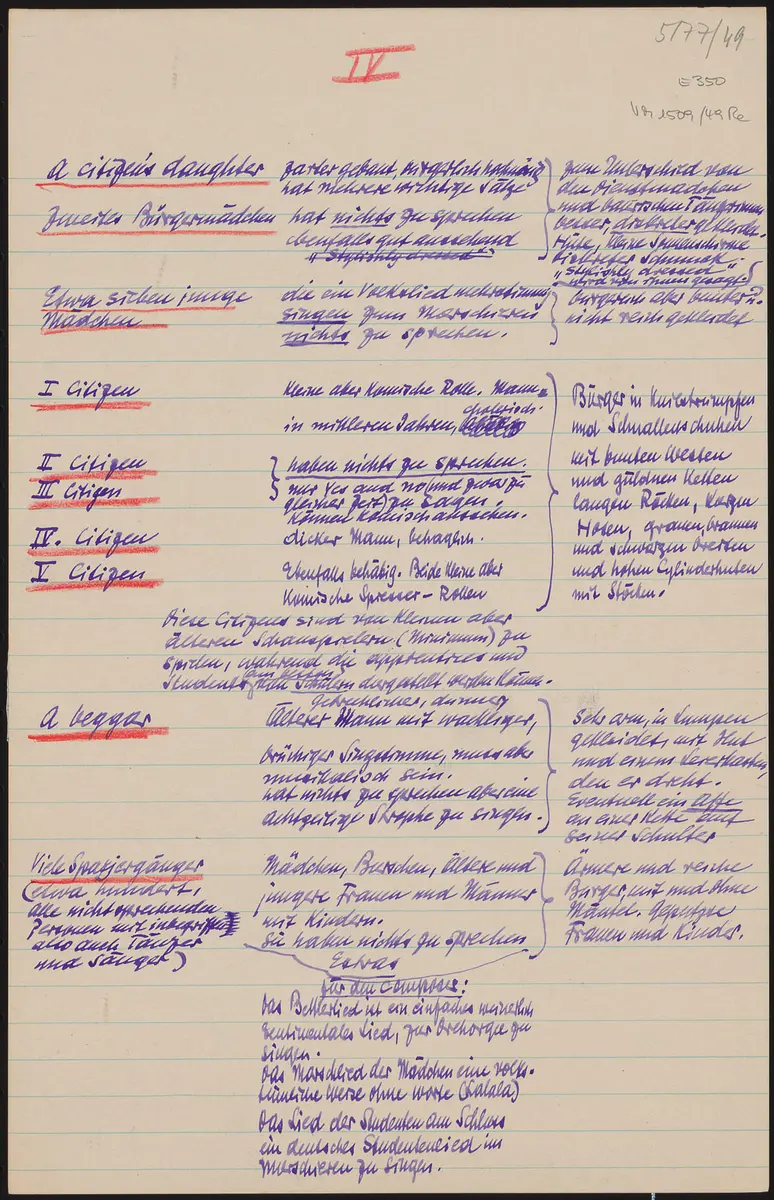 5177/49
IV
E350
VIII 1509/49 Re
A citizens daughter
zarter gebaut, bürgerlich
hat mehrere wichtige Sätze
zum Unterschied von
den Dienstmädchen
und bäurischen Tänzerinnen
besser, diskreter gekleidet.
Hüte, kleine Sonnenschirme
diskreter Schmuck.
"Stylishly dressed"
wird von ihnen gesagt
Zweites Bürgermädchen
hat nichts zu sprechen
ebenfalls gut aussehend
"Stylishly dressed"
Etwa sieben junge
Mädchen
die ein Volkslied mehrstimmig
singen zum Marschieren
nichts zu sprechen.
bürgerlich aber bunter u.
nicht reich gekleidet
I Citizen
Kleine aber Komische Rolle. Mann
in mittleren Jahren,
II Citizen
III Citizen
haben nichts zu sprechen.
nur Yes and no (und zwar zu
gleicher Zeit) zu sagen.
Können Komisch aussehen.
IV. Citizen
dicker Mann, behaglich.
V Citizen
Ebenfalls behäbig. Beide Kleine aber
Komische Sprecher-Rollen
Bürger in Kniestrümpfen
und Schnallenschuhen
mit bunten Westen
und güldnen Ketten
langen Röcken, Kurzen
Hosen, grauen, braunen
und schwarzen breiten
und hohen Cylinderhüten
mit Stöcken.
Diese Citizens sind von Kleinen aber
älteren Schauspielern (Minimum) zu
spielen, während die apprentices und
Students am besten von Schülern dargestellt werden Können.
A beggar
gebrechlicher, dünner
Älterer Mann mit wackliger,
brüchiger Singstimme, muss aber
musikalisch sein.
hat nichts zu sprechen aber eine
achtzeilige Strophe zu singen.
Sehr arm, in Lumpen
gekleidet, mit Hut
und einem Leierkasten,
den er dreht.
Eventuell ein Affe
an einer Kette auf
seiner Schulter
Viele Spaziergänger
(etwa hundert,
alle nichtsprechenden
Personen mit inbegriffen
also auch Tänzer
und Sänger)
Mädchen, Burschen, Ältere und
jüngere Frauen und Männer
mit Kindern.
Sie haben nichts zu sprechen
Extras
Ärmere und reiche
Bürger, mit und ohne
Mäntel. Geputzte
Frauen und Kinder.
für den Composer:
Das Bettlerlied ist ein einfaches weinerlich
sentimentales Lied, zur Drehorgel zu
singen.
Das Marschlied der Mädchen eine volks-
tümliche Weise ohne Worte (Lalala)
Das Lied der Studenten am Schluss
ein deutsches Studentenlied im
Marschieren zu singen.